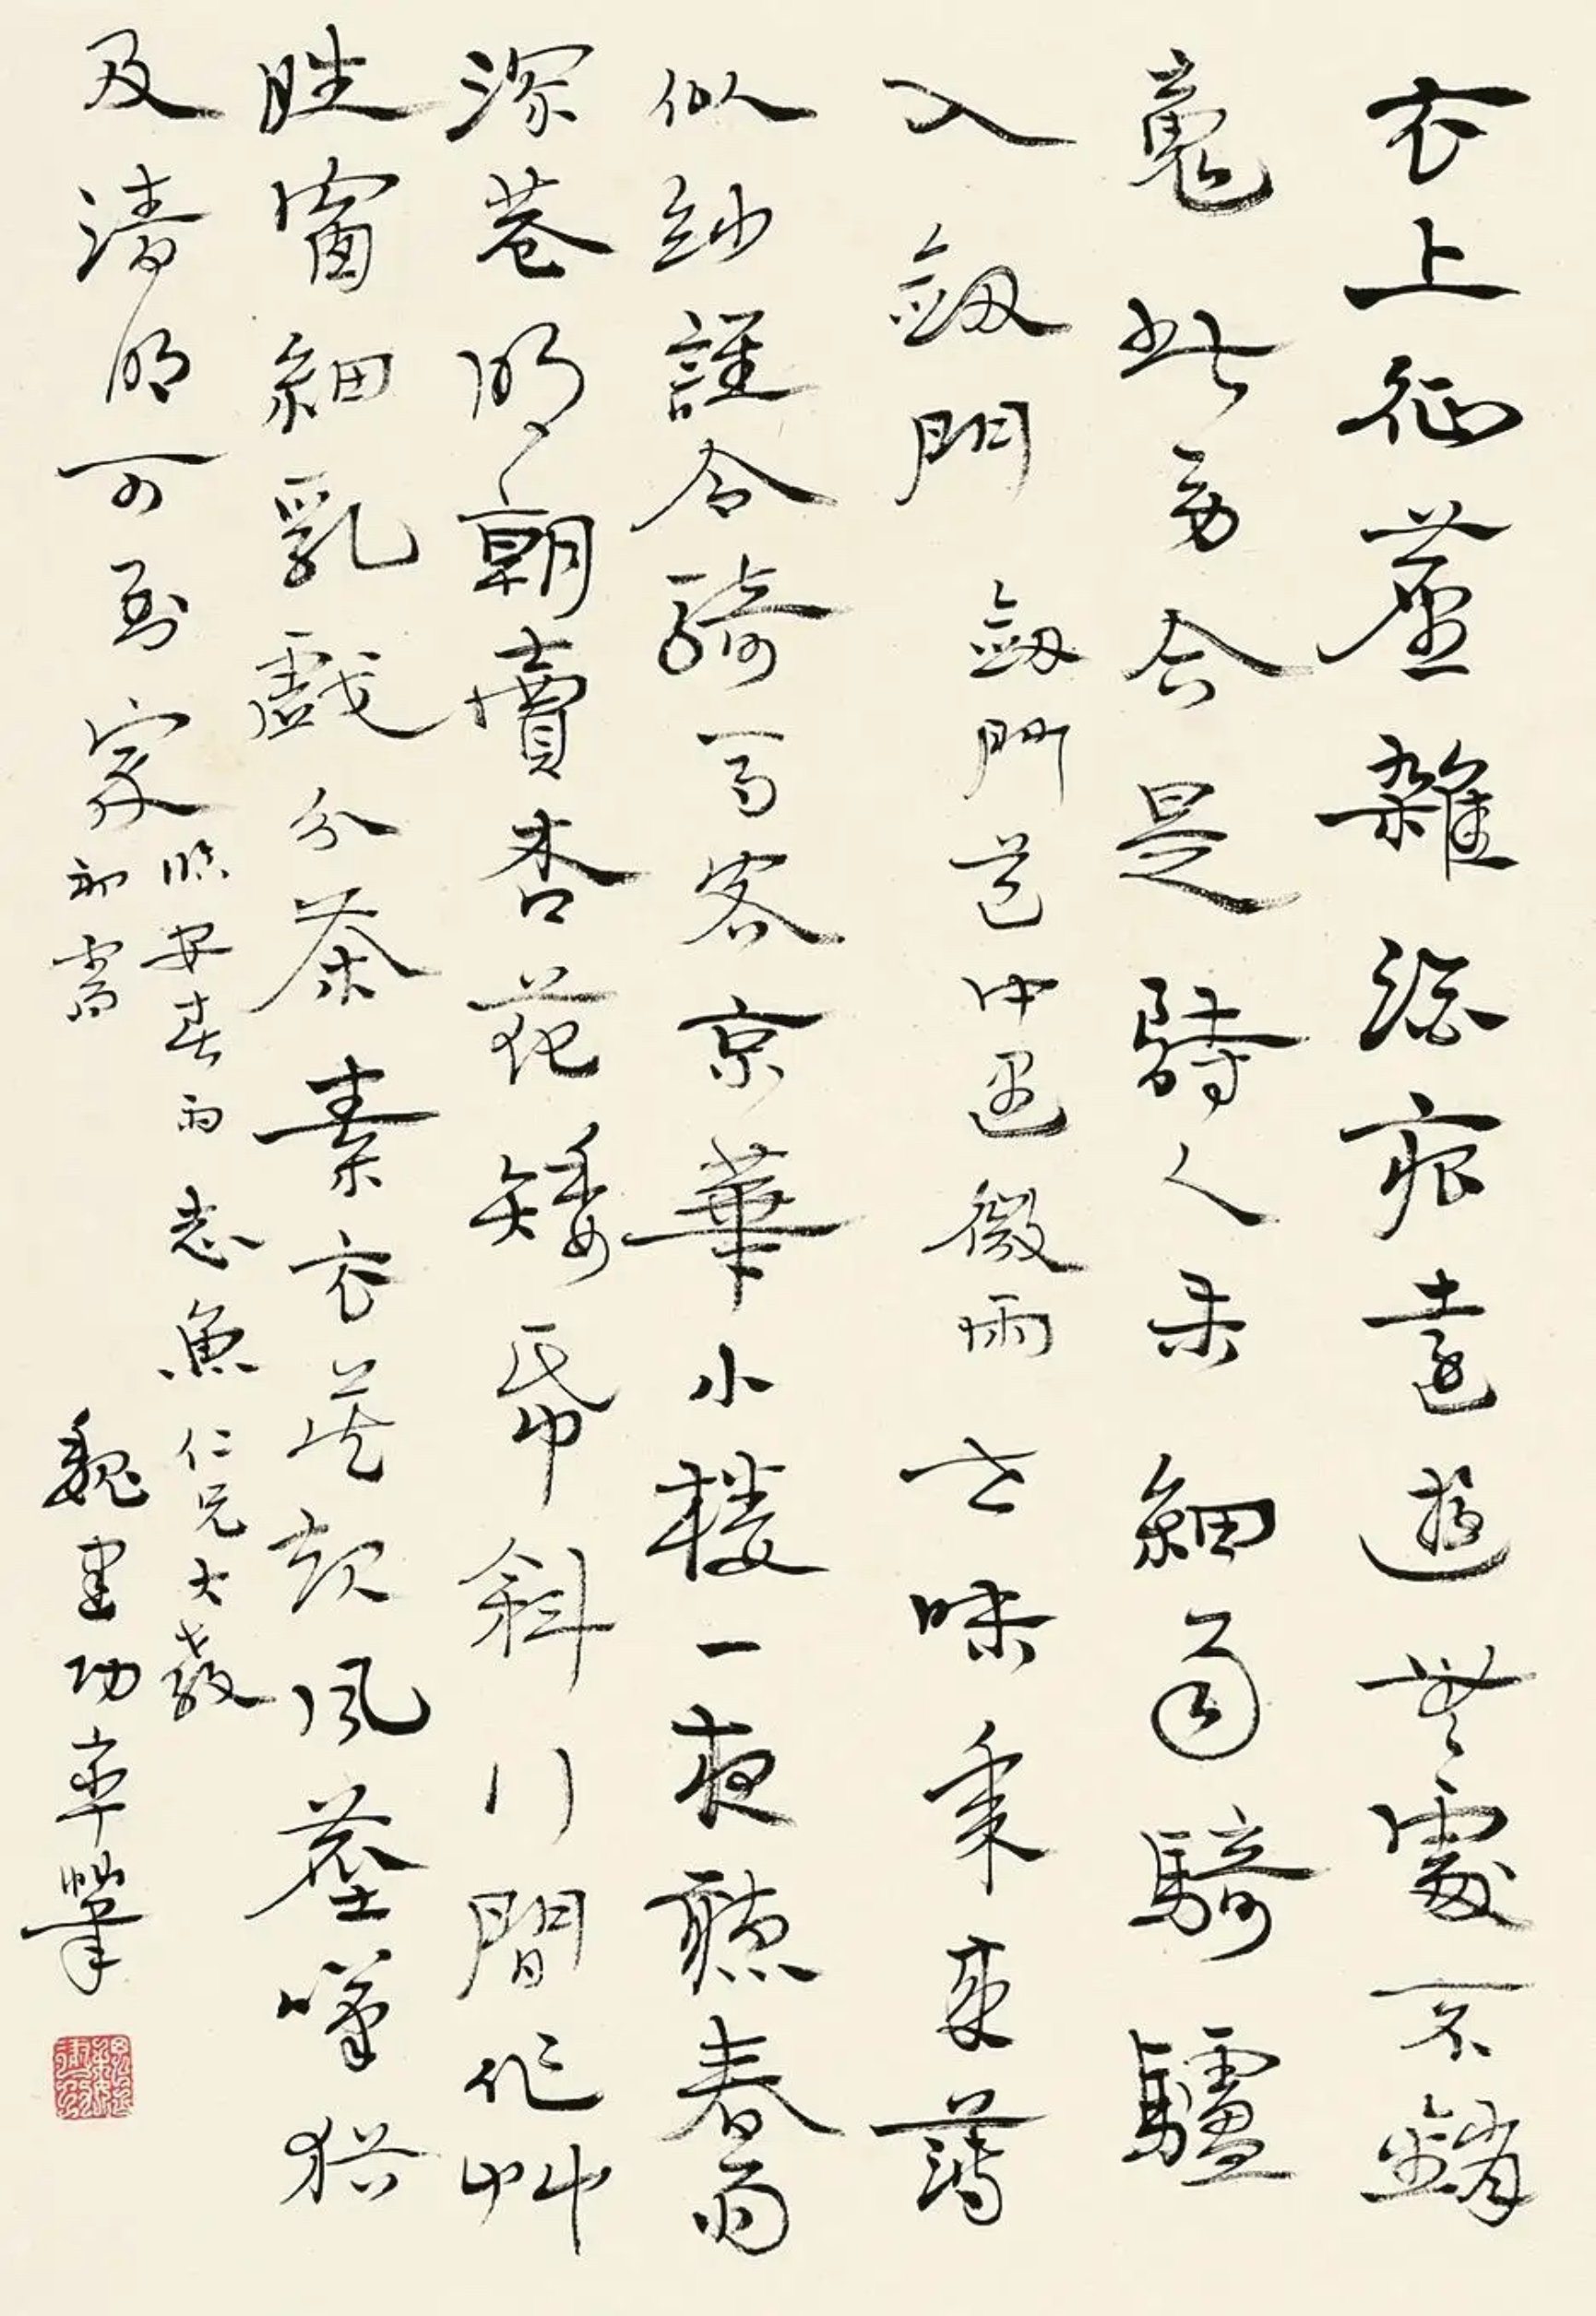 衣上征塵雜酒痕遠遊無處不銷
魂此身合是詩人未細雨騎驢
入劍門 劍門道中遇微雨 世味年來薄
似紗誰令騎馬客京華小樓一夜聽春雨
深巷明朝賣杏花矮帋斜行間作艸
晴窗細乳戲分茶素衣莫起風塵嘆猶
及清明可到家
臨安春雨
初霽
志魚仁兄大教
魏建功率筆